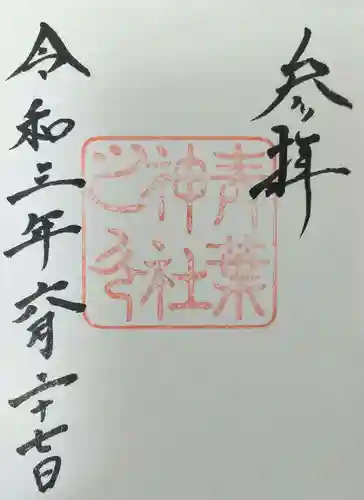 参拝
青葉
神社
之印
令和三年六月二十七日